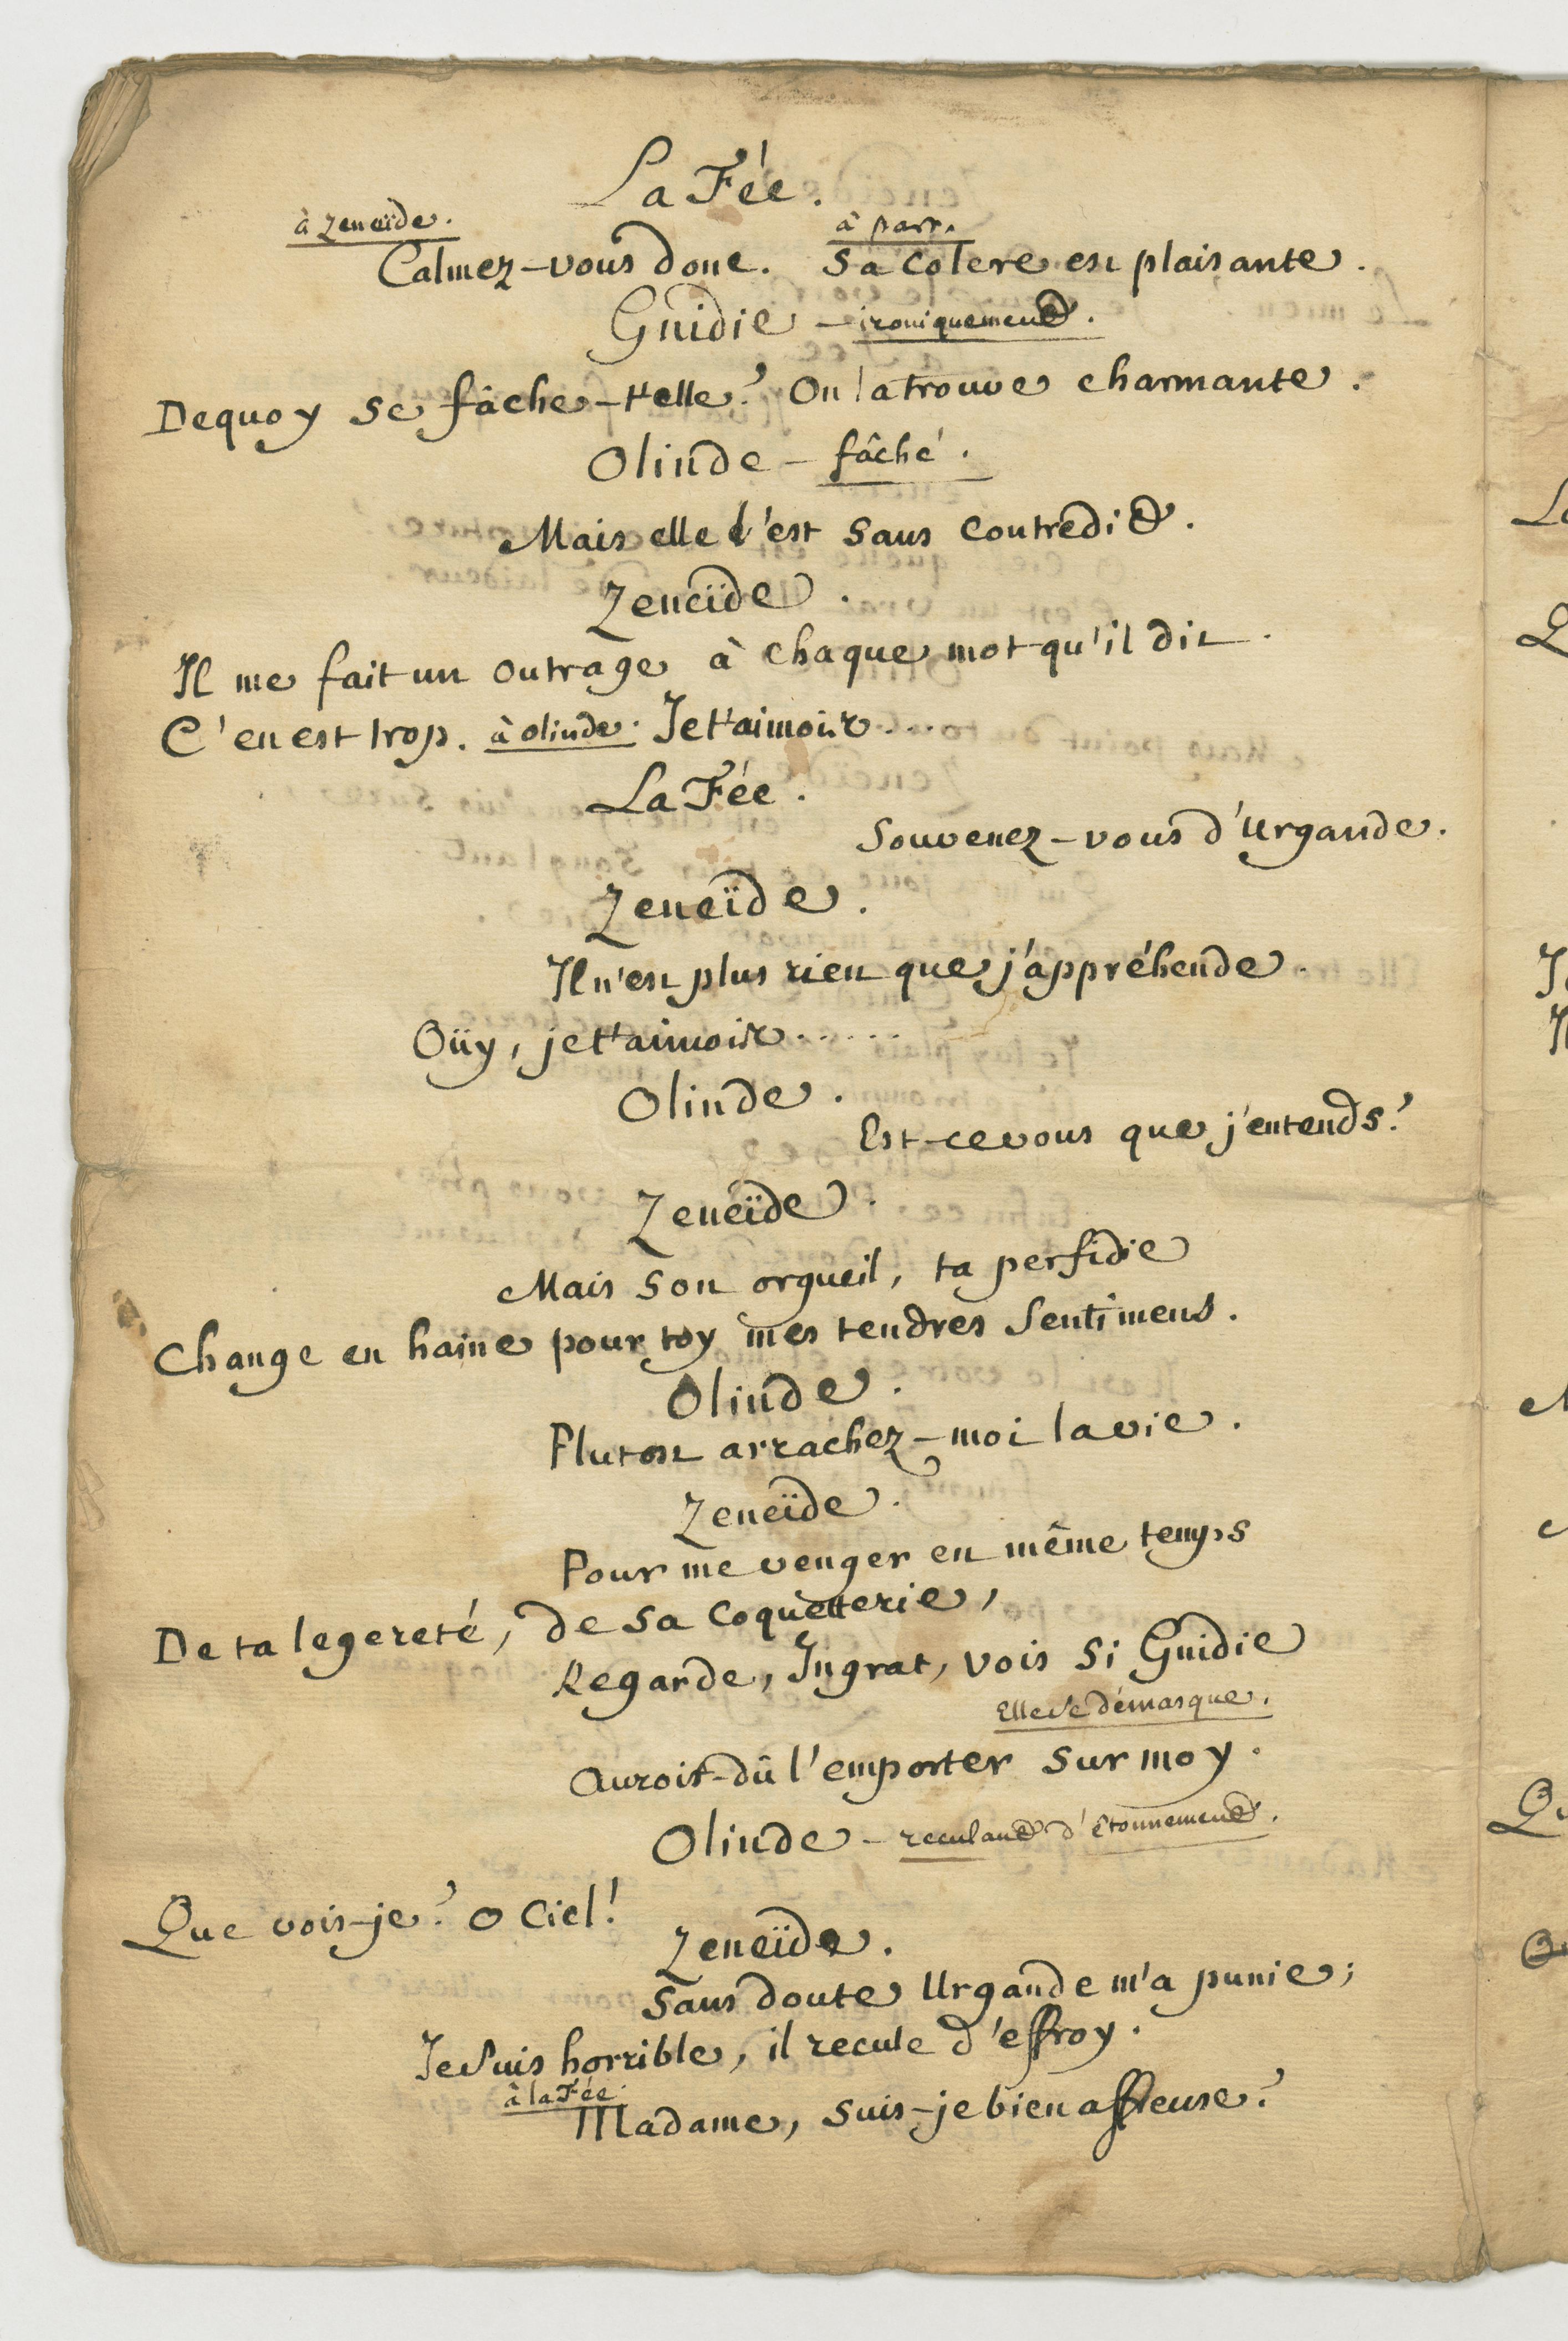 La Fée.
à Zeneïde. à part.
Calmez-vous donc. Sa colere est plaisante.
Gnidie - ironiquement.
Dequoy se fâche-t'elle? On la trouve charmante.
Olinde - fâché.
Mais elle l'est sans contredit.
Zeneïde.
Il me fait un outrage à chaque mot qu'il dit.
C'en est trop. à olinde. Je t'aimois...
La Fée.
Souvenez-vous d'Urgande.
Zeneïde.
Il n'est plus rien que j'appréhende.
Oüy, je t'aimois......
Olinde.
Est-ce vous que j'entends?
Zeneïde.
Mais son orgueil, ta perfidie
Change en haine pour toy mes tendres sentimens.
Olinde.
Plutost arrachez-moi la vie.
Zeneïde.
Pour me venger en même temps
De ta legereté, de sa coquetterie,
Regarde, Ingrat, vois si Gnidie
Elle se démasque.
Auroit-dû l'emporter sur moy.
Olinde - reculant d'étonnement.
Que vois-je? O Ciel!
Zeneïde.
Sans doute Urgande m'a punie;
Je suis horrible, il recule d'effroy.
à la Fée.
Madame, suis-je bien affreuse?